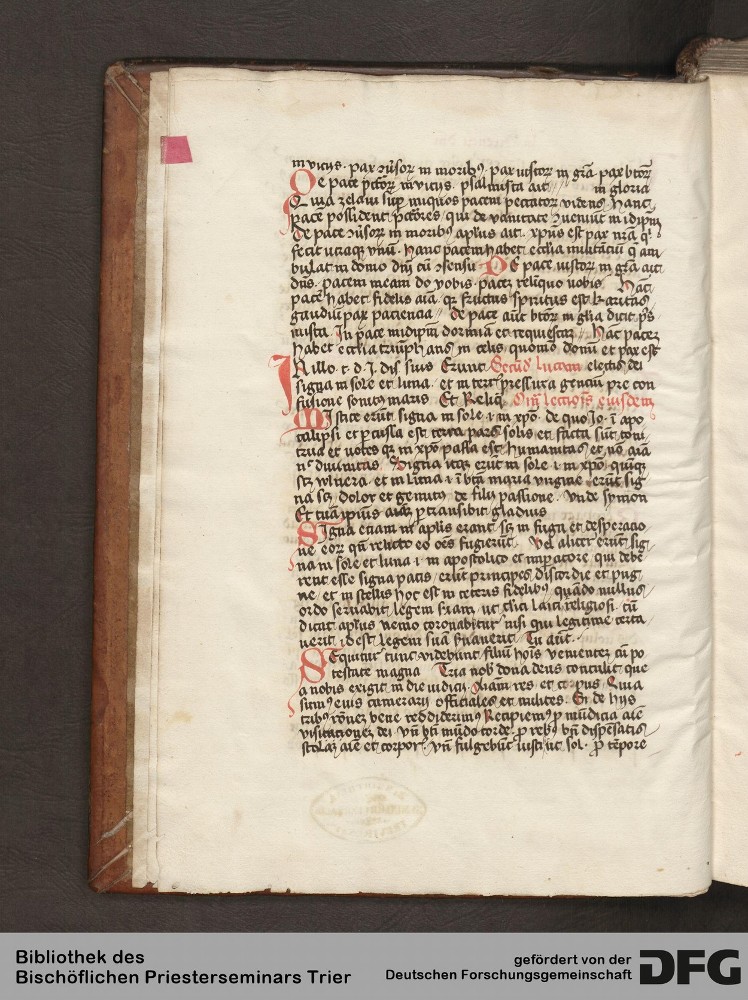 in vicijs · pax ɔu̇sor͛ in morib9 pax iustor͛ in gr̄a pax btōr͛
De pace pctōr͛ in vicijs · psalmista ait // in gloria
Quia zelaui sup iniquos pacem peccator͛ videns hanc
pacē possident pctōres qui de vanitate ɔueniūt in idipm̄
De pace ɔu̇sor͛ in morib9 aplus ait · xpūs est pax nrā q̇
fecit utraq; vnū · hanc pacem habet ecclīa militanciū q̄ am
bulat in domo dnī cū ɔsensu De pace iustor͛ in gr̄a ait
dn̄s · pacem meam do vobis · pacez relīquo uobis hāc
pacē habet fidelis aīa q̇ fructus spiritus est karitas
gaudiū pax paciencia // De pace aūt btōr͛ in glīa dicit ps̄
mista · In pace in idipm̄ dormiā et requiescā // hāc pacez
habet ecclīa triūphans in celis quoniā donū et pax est
IN illo · t · d · J · dis̄ suis Erunt Secūd̄ lucam electis dei
signa in sole et luna · et in terr̄ pressura genciū pre con
fusione sonitus maris · Et Reliq̄ · Om̄ lectiōis eiusdem
MIstice erūt signa in sole · i · in xpō · de quo Jo · ī apo
calipsi et pcussa est tercia pars solis et facta sūt toni
trua et uoces q̇ in xpō passa est humanitas et nō aīa
nc̄ diuinitas · Signa itaq; erūt in sole · i · in xpō quīq;
scz wlnera · et in luna · i · ī btā maria virgine erūt sig
na scz dolor et gemitus de filij passione · Vnde symon
Et tuā ipsius aīaz ptransibit gladius
SIgna etiam in aplis erant scz in fuga et desperacio
ne eor͛ qn̄ relicto eo oēs fugierūt · Vel aliter erūt sig
na in sole et luna · i · in apostolico et impatore qui debe
rent esse signa pacis erūt principes discordie et pug
ne · et in stellis hoc est in ceteris fidelibus quādo nullus
ordo seruabit legem suam ut cl̄ici laici religiosi · cū
dicat aplus nemo coronabitur nisi qui legitime certa
uerit · id est legem suā suauerit Tu aūt ·
SEquitur tunc videbunt filiū hoīs venientez cū po
testate magna Tria nob̄ dona deus contulit que
a nobis exigit in die iudicij · Aīam res et corpus Quia
sumus eius camerarij officiales et milites · Si de hijs
tribus rōnez bene reddiderimus Recipiemus p mūdicia aīe
visitacionez dei · vn̄ bti mūdo corde · p reb9 bn̄ dispesatis
stolaz aīe et corpor · vn̄ fulgebūt iusti ut sol · p corpore
Bibliothek des
Bischöflichen Priesterseminars Trier
gefördert von der
Deutschen Forschungsgemeinschaft
DFG